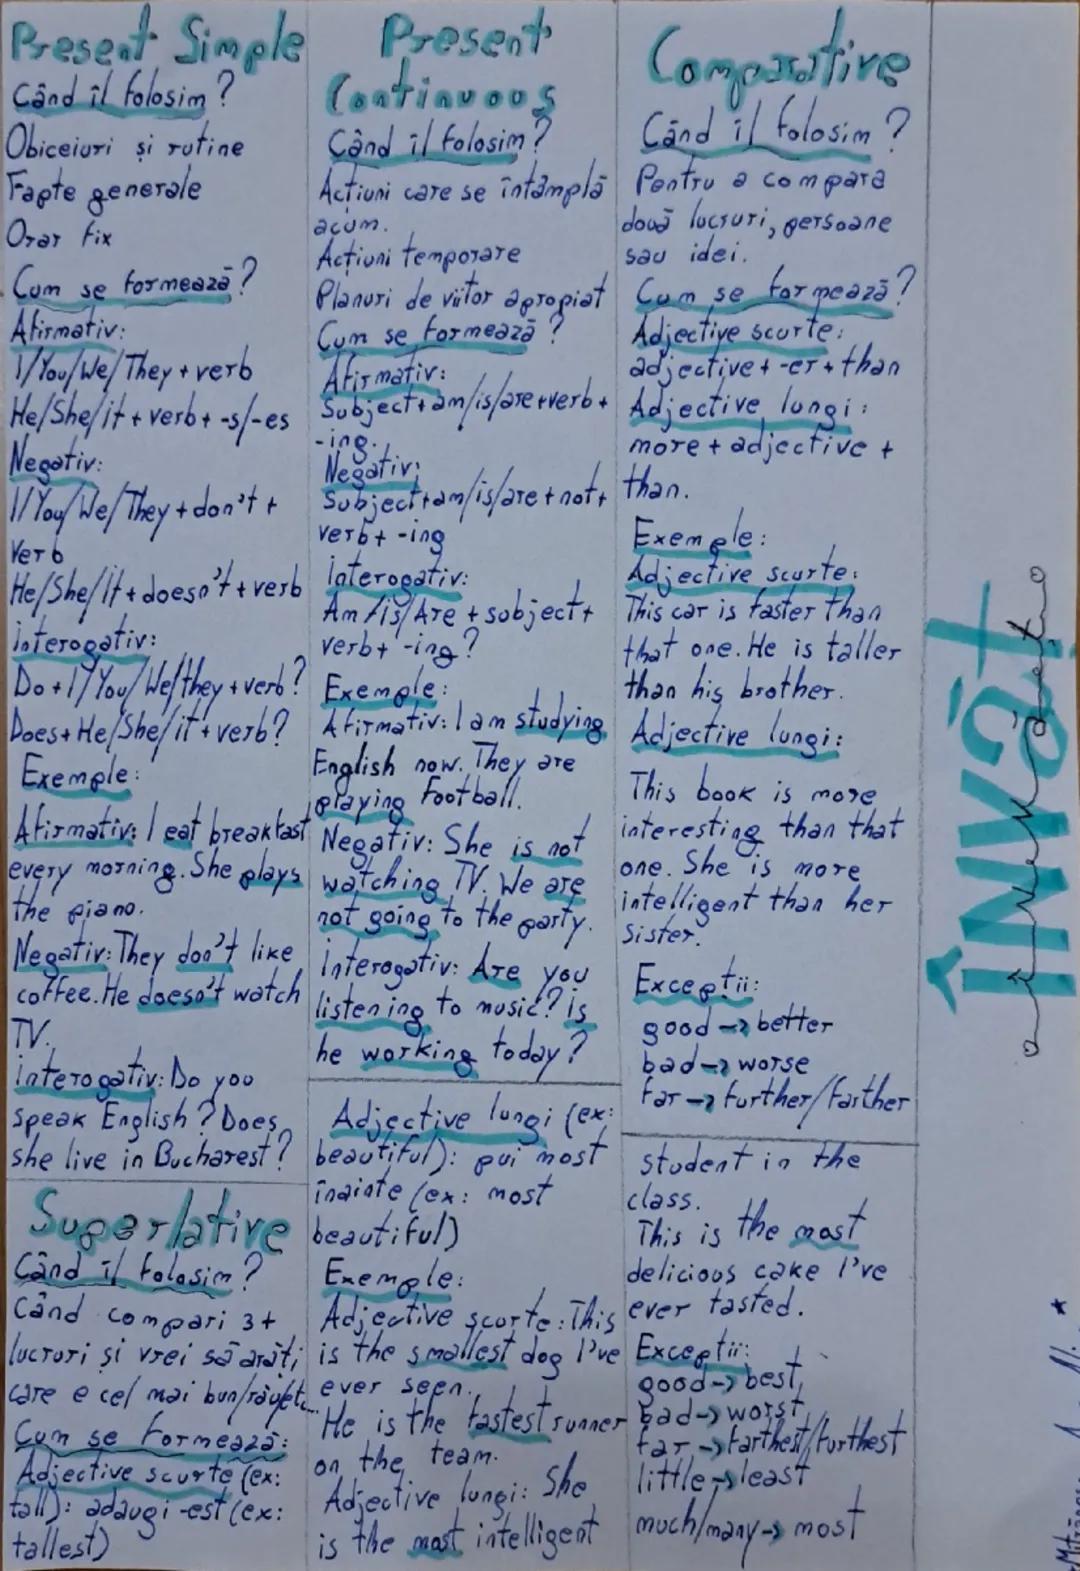 Present Simple
Când îl folosim?
Obiceiuri și rutine
Fapte generale
Orar fix
Cum se formează?
Afirmativ:
I/You/We/They + verb
He/She/it + verb + -s/-es
Negativ:
I/You/We/They + don't +
verb
He/She/It + doesn't + verb
interogativ:
Do + I/You/We/they + verb?
Does + He/She/it + verb?
Exemple:
Afirmativ: I eat breakfast
every morning. She plays
the piano.
Negativ: They don't like
coffee. He doesn't watch
TV.
interogativ: Do you
speak English? Does
she live in Bucharest?
Present
Continuous
Când îl folosim?
Acțiuni care se întâmplă
acum.
Acțiuni temporare
Planuri de viitor apropiat
Cum se formează?
Afirmativ:
Subject + am/is/are + verb +
-ing.
Negativ:
Subject + am/is/are + not +
verb + -ing
interogativ:
Am/is/Are + subject +
verb + -ing?
Exemple:
Afirmativ: I am studying
English now. They are
playing football.
Negativ: She is not
watching TV. We are
not going to the party.
interogativ: Are you
listening to music? is
he working today?
Comparative
Când îl folosim?
Pentru a compara
două lucruri, persoane
sau idei.
Cum se formează?
Adjective scurte:
adjective + -er + than
Adjective lungi:
more + adjective +
than.
Exemple:
Adjective scurte:
This car is faster than
that one. He is taller
than his brother.
Adjective lungi:
This book is more
interesting than that
one. She is more
intelligent than her
sister.
Excepții:
good -> better
bad -> worse
far -> further/farther
Superlative
Când îl folosim?
Când compari 3+
lucruri și vrei să arăți
care e cel mai bun/rău/etc.
Cum se formează:
Adjective scurte (ex:
tall): adaugi -est (ex:
tallest)
Adjective lungi (ex:
beautiful): pui most
înainte (ex: most
beautiful)
Exemple:
Adjective scurte: This
is the smallest dog I've
ever seen.
He is the fastest runner
on the team.
Adjective lungi: She
is the most intelligent
student in the
class.
This is the most
delicious cake I've
ever tasted.
Excepții:
good -> best
bad -> worst
far -> farthest/furthest
little -> least
much/many -> most
ÎNVĂȚ